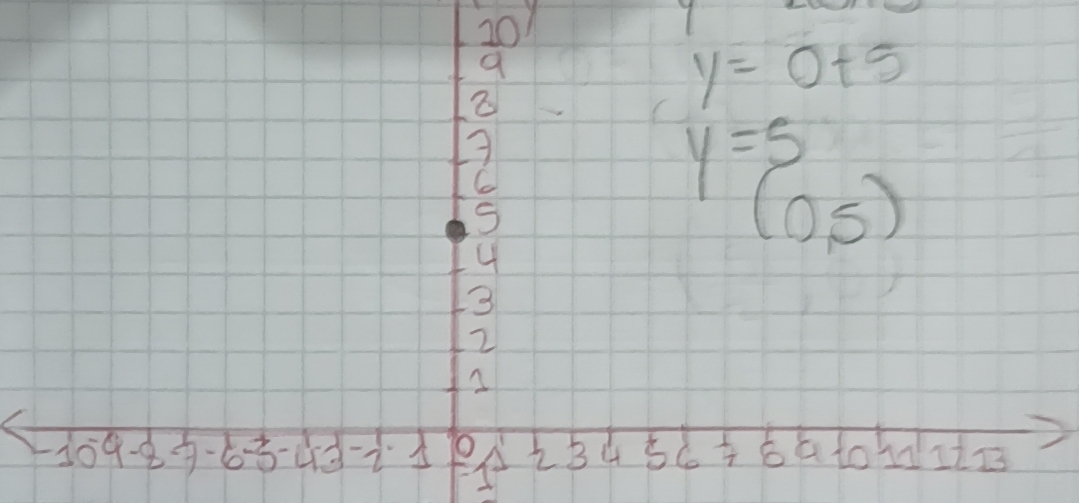 10 y
9
8
7
6
5
4
3
2
1
y = 0+5
y = 5
(0,5)
-10 -9 -8 -7 -6 -5 -4 -3 -2 -1 0 1 2 3 4 5 6 7 8 9 10 11 12 13
-1